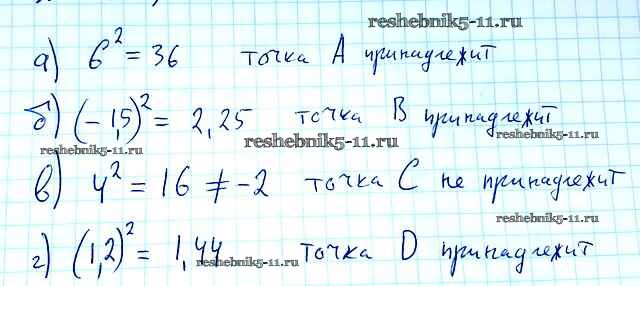 reshebnik5-11.ru
а) 6² = 36 точка А принадлежит
б) (-1,5)² = 2,25 точка В принадлежит
reshebnik5-11.ru
reshebnik5-11.ru
reshebnik5-11.ru
в) 4² = 16 ≠ -2 точка С не принадлежит
reshebnik5-11.ru
г) (1,2)² = 1,44 точка D принадлежит
reshebnik5-11.ru